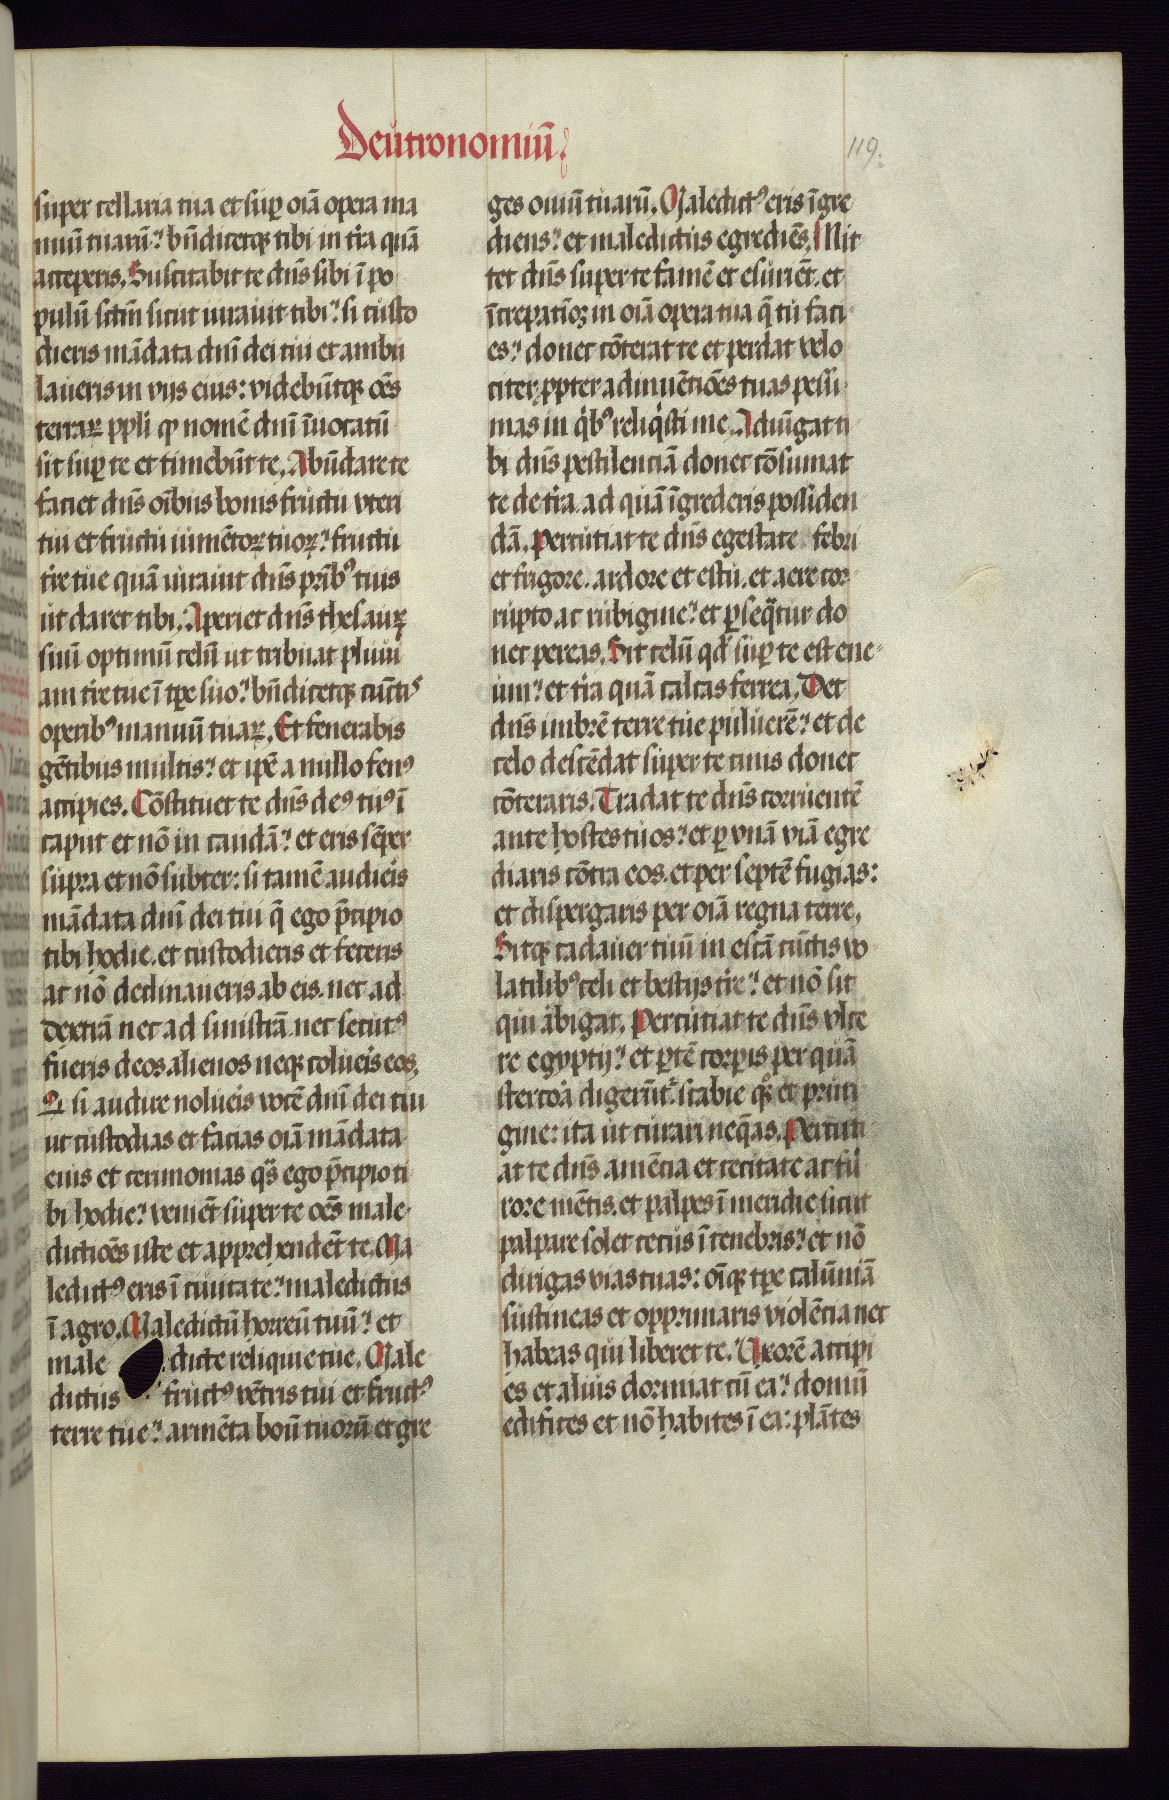 Deutronomiū
119.
super cellaria tua et sup̲ oīa opera ma
nuū tuarū? bn̄dicetqꝫ tibi in tr̄a quā
acceperis. Suscitabit te dn̄s sibi ī po
pulū sctm̄ sicut iurauit tibi? si custo
dieris mādata dn̄i dei tui et ambu
laueris in vijs eius: videbūtqꝫ oēs
terraꝝ pp̄li qꝫ nomē dn̄i īuocatū
sit sup̲ te et timebūt te. Abūdare te
faciet dn̄s oībus bonis fructu vteri
tui et fructu iumētoꝝ tuoꝝ? fructu
tr̄e tue quā iurauit dn̄s pr̄ibꝰ tuis
ut daret tibi. Aperiet dn̄s thesauꝝ
suū optimū celū ut tribuat pluui
am tr̄e tue ī tp̄e suo? bn̄dicetqꝫ cūctꝭ
operibꝰ manuū tuaꝝ. Et fenerabis
gētibus multis? et ip̄e a nullo fenꝰ
accipies. Cōstituet te dn̄s deꝰ tuꝰ ī
caput et nō in caudā? et eris sēper
supra et nō subter: si tamē audieis
mādata dn̄i dei tui q̄ ego p̄cipio
tibi hodie. et custodieris et feceris
ac nō declinaueris ab eis. nec ad
dextrā nec ad sinistrā. nec secutꝰ
fueris deos alienos neqꝫ colueis eos.
Qͩ si audire nolueis vocē dn̄i dei tui
ut custodias et facias oīa mādata
eius et cerimonias qͣs ego p̄cipio ti
bi hodie? veniēt super te oēs male
dictiōes iste et apprehendēt te. Ma
ledictꝰ eris ī ciuitate? maledictus
ī agro. Maledictū horreū tuū? et
male dicte reliquie tue. Male
dictus fructꝰ vētris tui et fructꝰ
terre tue? armēta boū tuorū et gre
ges ouiū tuarū. Maledictꝰ eris īgre
diens? et maledictus egrediēs. Mit
tet dn̄s super te famē et esuriēt. et
īcrepatiōꝫ in oīa opera tua q̄ tu faci
es? donec cōterat te et perdat velo
citer. ꝓpter adinuētiōes tuas pessi
mas in qͥbꝰ reliqͥsti me. Adiūgat ti
bi dn̄s pestilenciā donec cōsumat
te de tr̄a. ad quā īgrederis possiden
dā. Percutiat te dn̄s egestate febri
et frigore. ardore et estu. et aere cor
rupto. ac rubigine? et ꝑseq̄tur do
nec pereas. Sit celū qd̄ sup̲ te est ene
um? et tr̄a quā calcas ferrea. Det
dn̄s imbrē terre tue puluerē? et de
celo descēdat super te cinis donec
cōteraris. Tradat te dn̄s corruentē
ante hostes tuos? et ꝑ vnā viā egre
diaris cōtra eos. et per septē fugias:
et dispergaris per oīa regna terre.
Sitqꝫ cadauer tuū in escā cūctis vo
latilibꝰ celi et bestijs tr̄e? et nō sit
qui ābigat. Percutiat te dn̄s vlce
re egyptij? et ꝑtē corꝑis per quā
stercoͣa digerūtͬ. scabie qͦqꝫ et pruri
gine: ita ut curari neq̄as. Percuti
at te dn̄s amēcia et cecitate ac fu
rore mētis. et palpes ī meridie sicut
palpare solet cecus ī tenebris? et nō
dirigas vias tuas: oīqꝫ tp̄e calūniā
sustineas et opprimaris violētia nec
habeas qui liberet te. Uxorē accipi
es et alius dormiat cū ea? domū
edifices et nō habites ī ea: plātes